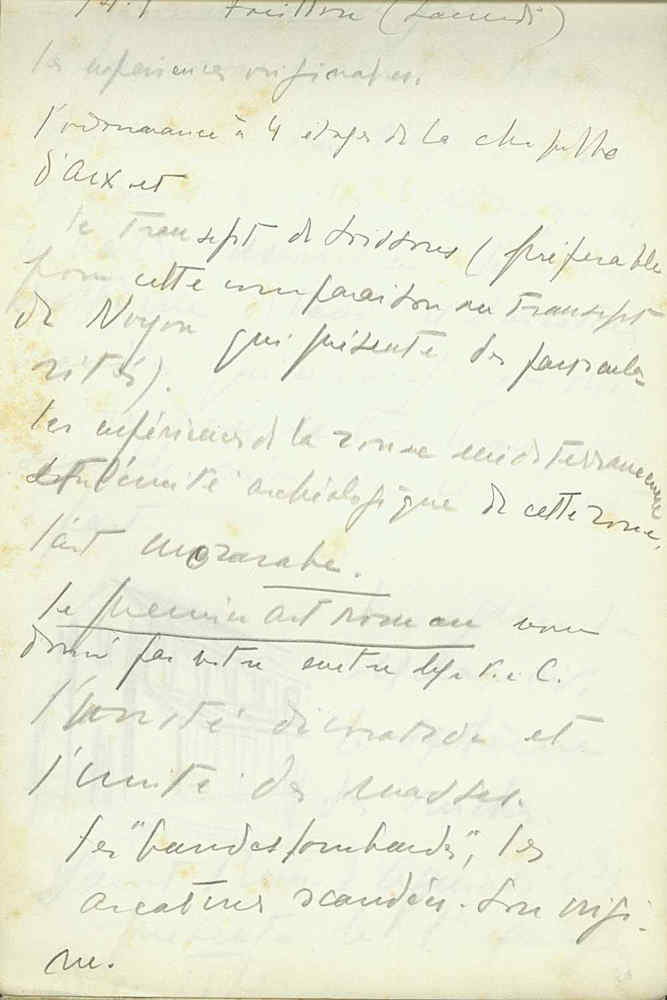 Focillon (Samedi)
Les expériences originales.
l'ordonnance à 4 étages de la chapelle
d'Aix et
le transept de Soissons (préférable
pour cette comparaison au transept
de Noyon qui présente des particula-
rités).
Les expériences de la zone méditerranéenne
et l'unité archéologique de cette zone,
l'art mozarabe.
Le premier art roman
donné par notre
l'unité décorative et
l'unité des masses.
Les "bandes lombardes", les
arcatures scandées. Son origi-
ne.